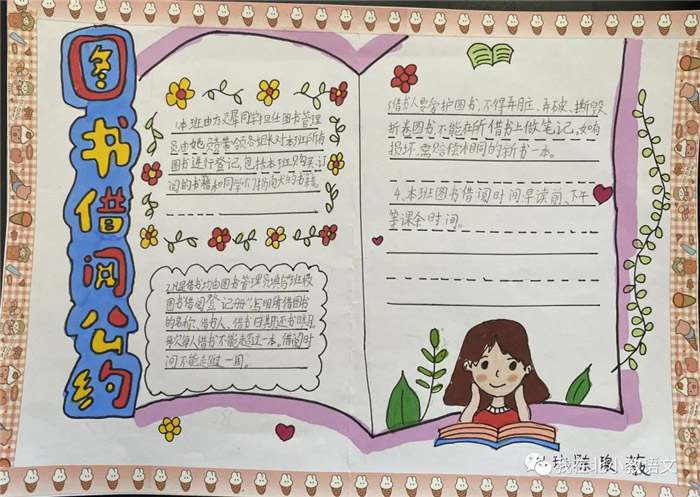 图书借阅公约
1.本班由 同学担任图书管理
员,由她负责带领各组长对本班所有
图书进行登记,包括本班购买、订
阅的书籍和同学们捐献的书籍。
2.凡是借书均由图书管理员填写"班级
图书借阅登记册"写明所借图书
的名称、借书人、借书日期、还书日期,
每次每人借书不能超过一本。借阅时
间不能超过一周。
3.借书人要爱护图书,不得弄脏、弄破、撕毁、
折卷图书,不能在所借书上做笔记。如有
损坏,要赔偿相同的新书一本。
4.本班图书借阅时间:早读前、下午
等课余时间。